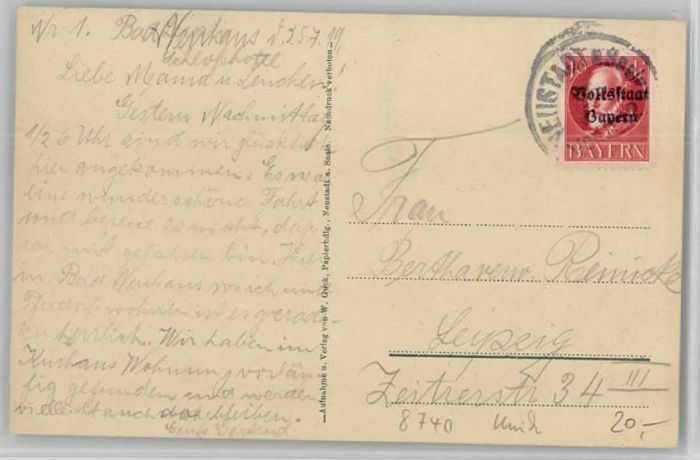 Nr 1. Bad Neuhaus d. 25.7.19
Schloßhotel
Liebe Mama u. Lenchen!
Gestern Nachmittag
1/2 6 Uhr sind wir glücklich
hier angekommen. Es war
eine wunderschöne Fahrt
und bereue es nicht, daß
ich mit gefahren bin. Hier
in Bad Neuhaus wo ich und
ist es gerade-
zu herrlich. Wir haben im
Kurhaus Wohnung vorläu-
fig gefunden und werden
vielleicht auch dort bleiben.
Gruß Gertrud
Aufnahme u. Verlag von W. Papierhdlg., Neustadt a. Saale. Nachdruck verboten
NEUSTADT
Volksstaat
Bayern
BAYERN
Frau
Bertha verw. Reinicke
Leipzig
Zeitzerstr 34 III
8740 20,-